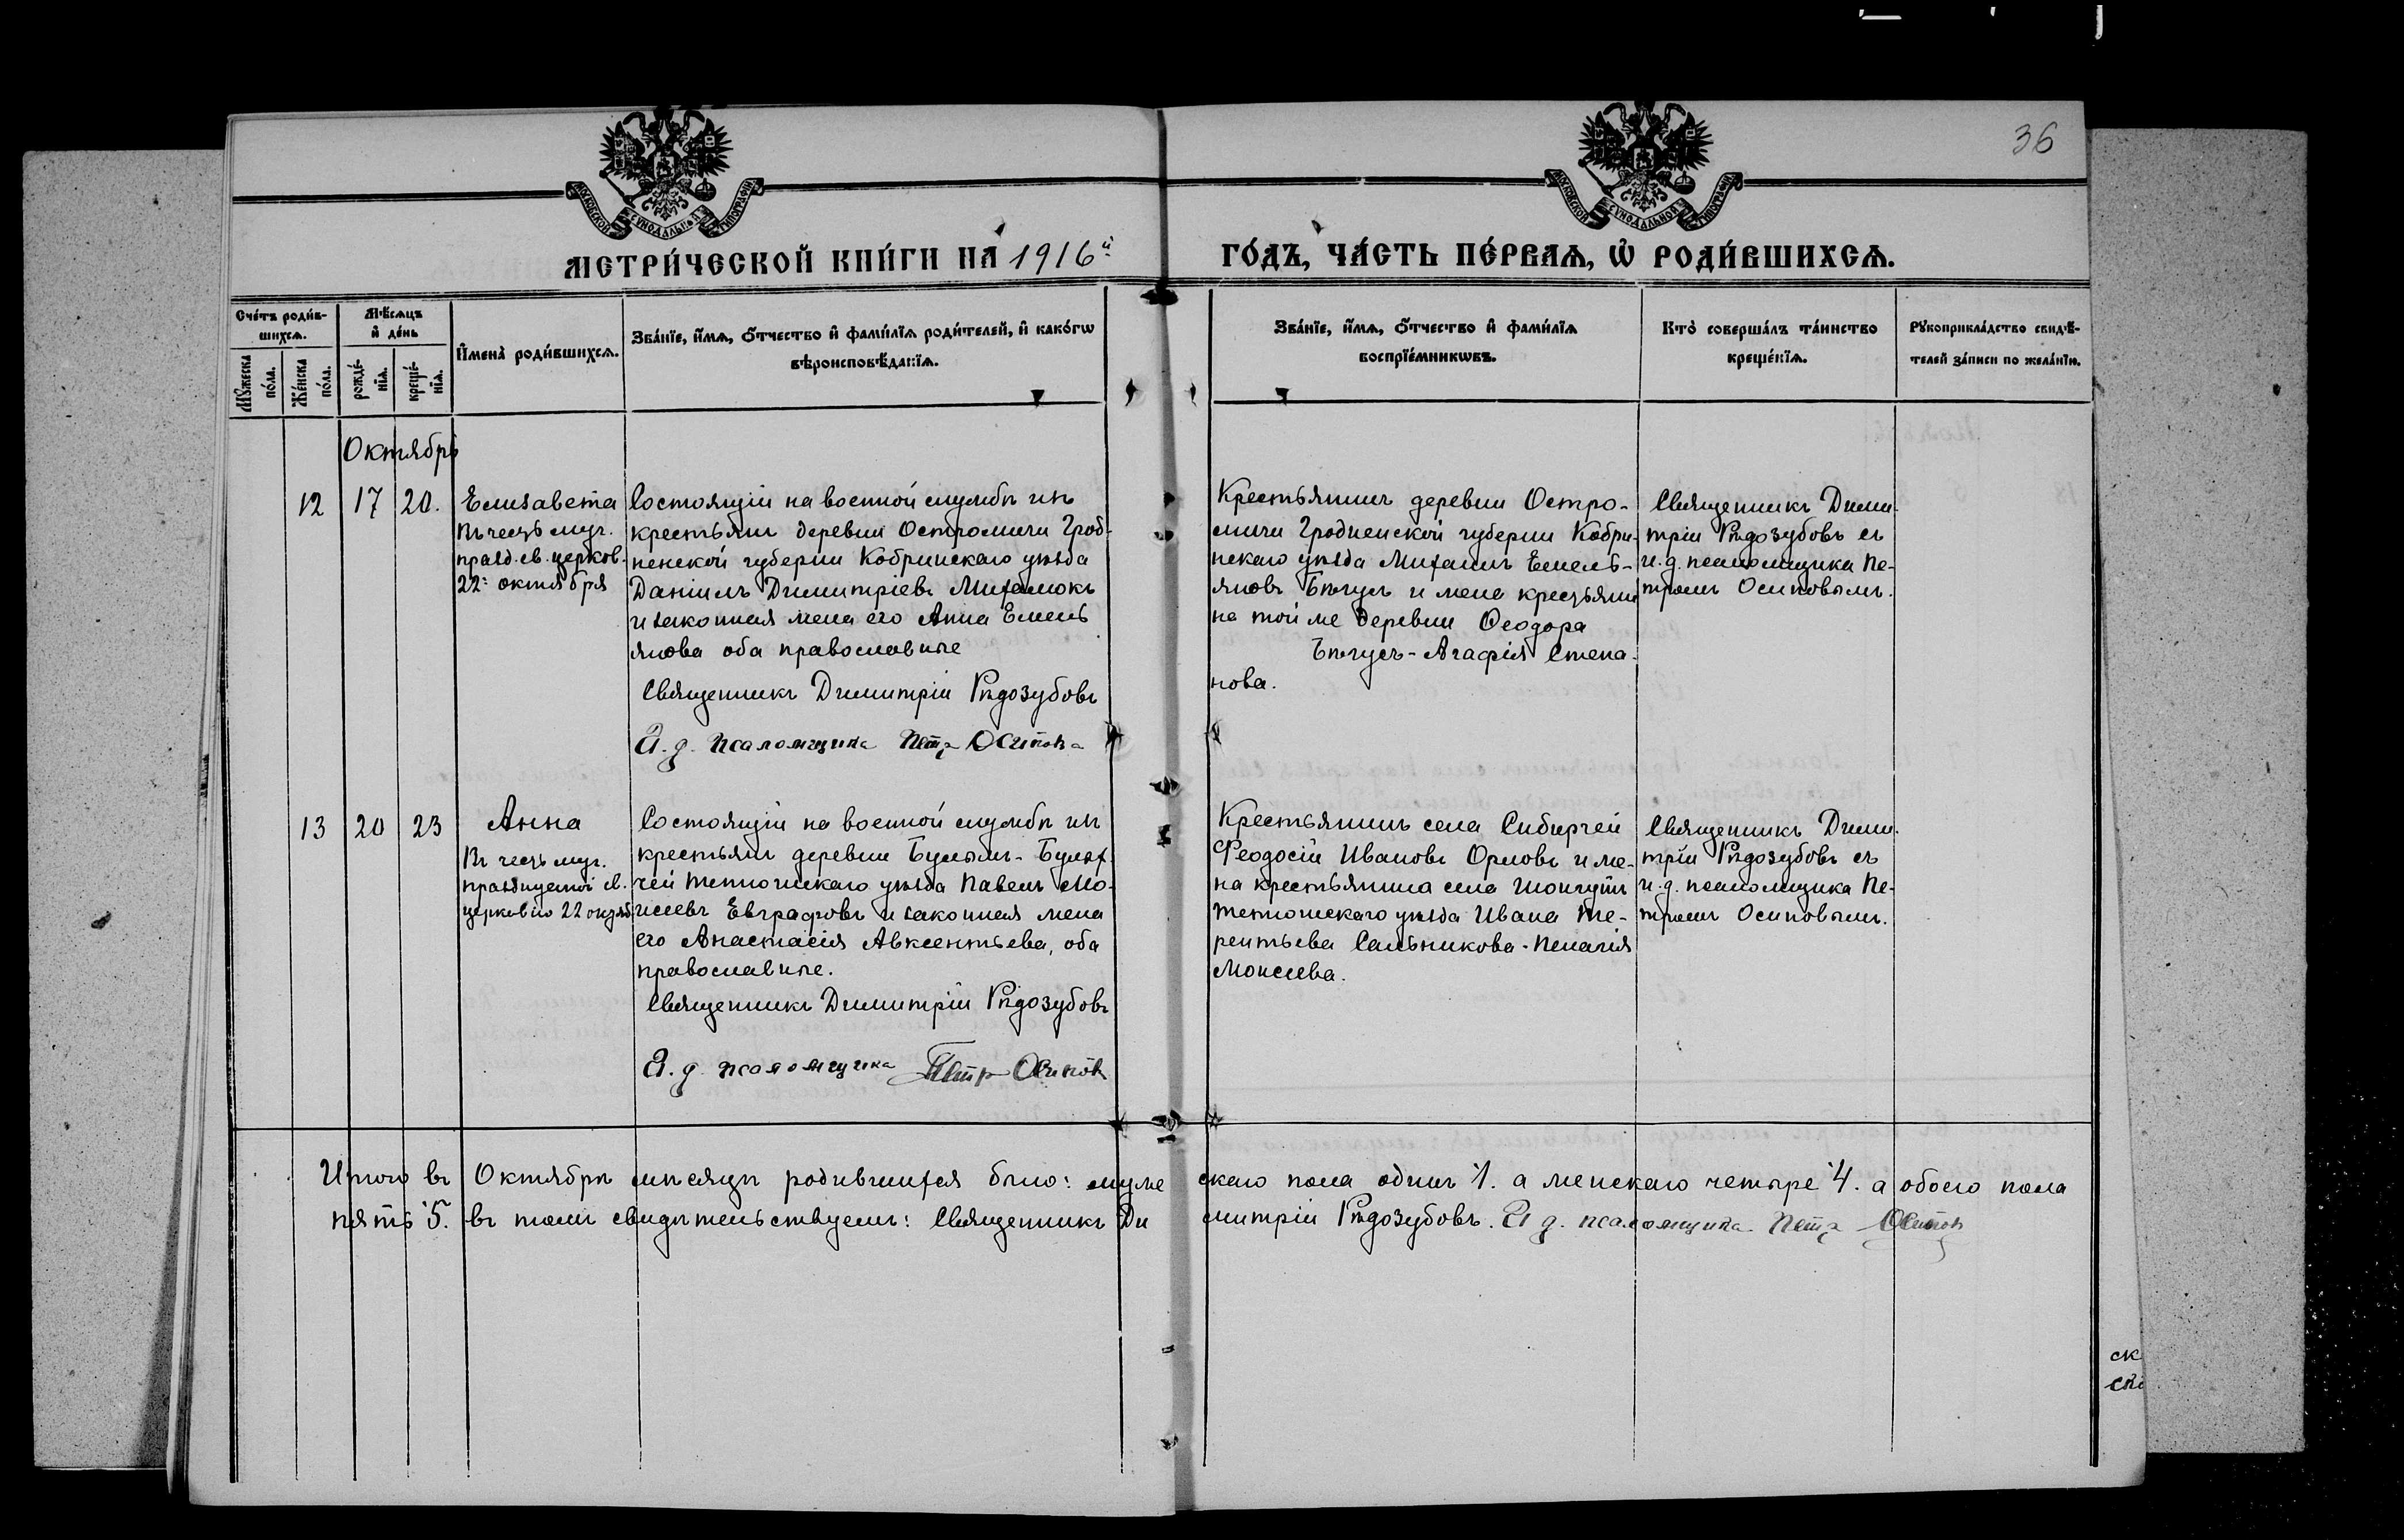 36
МОСКОВСКОЙ СУНОДАЛЬНОЙ ТИПОГРАФІИ
МОСКОВСКОЙ СУНОДАЛЬНОЙ ТИПОГРАФІИ
МЕТРИ́ЧЕСКОЙ КНИ́ГИ НА 1916й ГО́ДЪ, ЧА́СТЬ ПЕ́РВАѦ, Ѡ҆ РОДИ́ВШИХСѦ.
Сче́тъ роди́в-
шихсѧ.
Мꙋ́жеска по́ла.
Же́нска по́ла.
Мѣ́сѧцъ
и҆ де́нь
рожде́-
нїѧ.
креще́-
нїѧ.
И҆мена̀ роди́вшихсѧ.
Зва́нїе, и҆́мѧ, ѻ҆́тчество и҆ фами́лїѧ роди́телей, и҆ како́гѡ
вѣроисповѣ́данїѧ.
Зва́нїе, и҆́мѧ, ѻ҆́тчество и҆ фами́лїѧ
воспрїе́мникѡвъ.
Кто̀ соверша́лъ та́инство
креще́нїѧ.
Рꙋкоприкла́дство свидѣ́-
телей за́писи по жела́нїю.
Октябрь
12 17 20.
Елизавета
Въ честь муч.
празд. св. церков.
22го октября
Состоящій на военной службѣ изъ
крестьянъ деревни Остромичи Грод-
ненской губерніи Кобринскаго уѣзда
Даніилъ Димитріевъ Михалюкъ
и законная жена его Анна Емель
янова оба православные
Священникъ Димитрій Рѣдозубовъ
И. д. псаломщика Петръ Осиповъ
Крестьянинъ деревни Остро-
мичи Гродненской губерніи Кобри-
нскаго уѣзда Михаилъ Емель-
яновъ Бѣгусъ и жена крестьяни
на той же деревни Ѳеодора
Бѣгусъ - Агафія Степа-
нова.
Священникъ Дими-
трій Рѣдозубовъ съ
и. д. псаломщика Пе-
тромъ Осиповымъ.
13 20 23
Анна
Въ честь муч.
празднуемой св.
церковію 22 октяб
Состоящій на военной службѣ изъ
крестьянъ деревни Булымъ-Булых
чей Тетюшскаго уѣзда Павелъ Мо-
исеевъ Евграфовъ и законная жена
его Анастасія Авксентьева, оба
православные.
Священникъ Димитрій Рѣдозубовъ
И. д. псаломщика Петръ Осиповъ
Крестьянинъ села Сибирчей
Ѳеодосій Ивановъ Орловъ и же-
на крестьянина села Шонгутъ
Тетюшскаго уѣзда Ивана Те-
рентьева Сальникова - Пелагія
Моисеева.
Священникъ Дими-
трій Рѣдозубовъ съ
и. д. псаломщика Пе-
тромъ Осиповымъ.
Итого въ Октябрѣ мѣсяцѣ родившихся было: муже скаго пола одинъ 1. а женскаго четыре 4. а обоего пола
пять 5. въ томъ свидѣтельствуемъ: Священникъ Ди митрій Рѣдозубовъ. И д. псаломщика Петръ Осиповъ
ск
ска